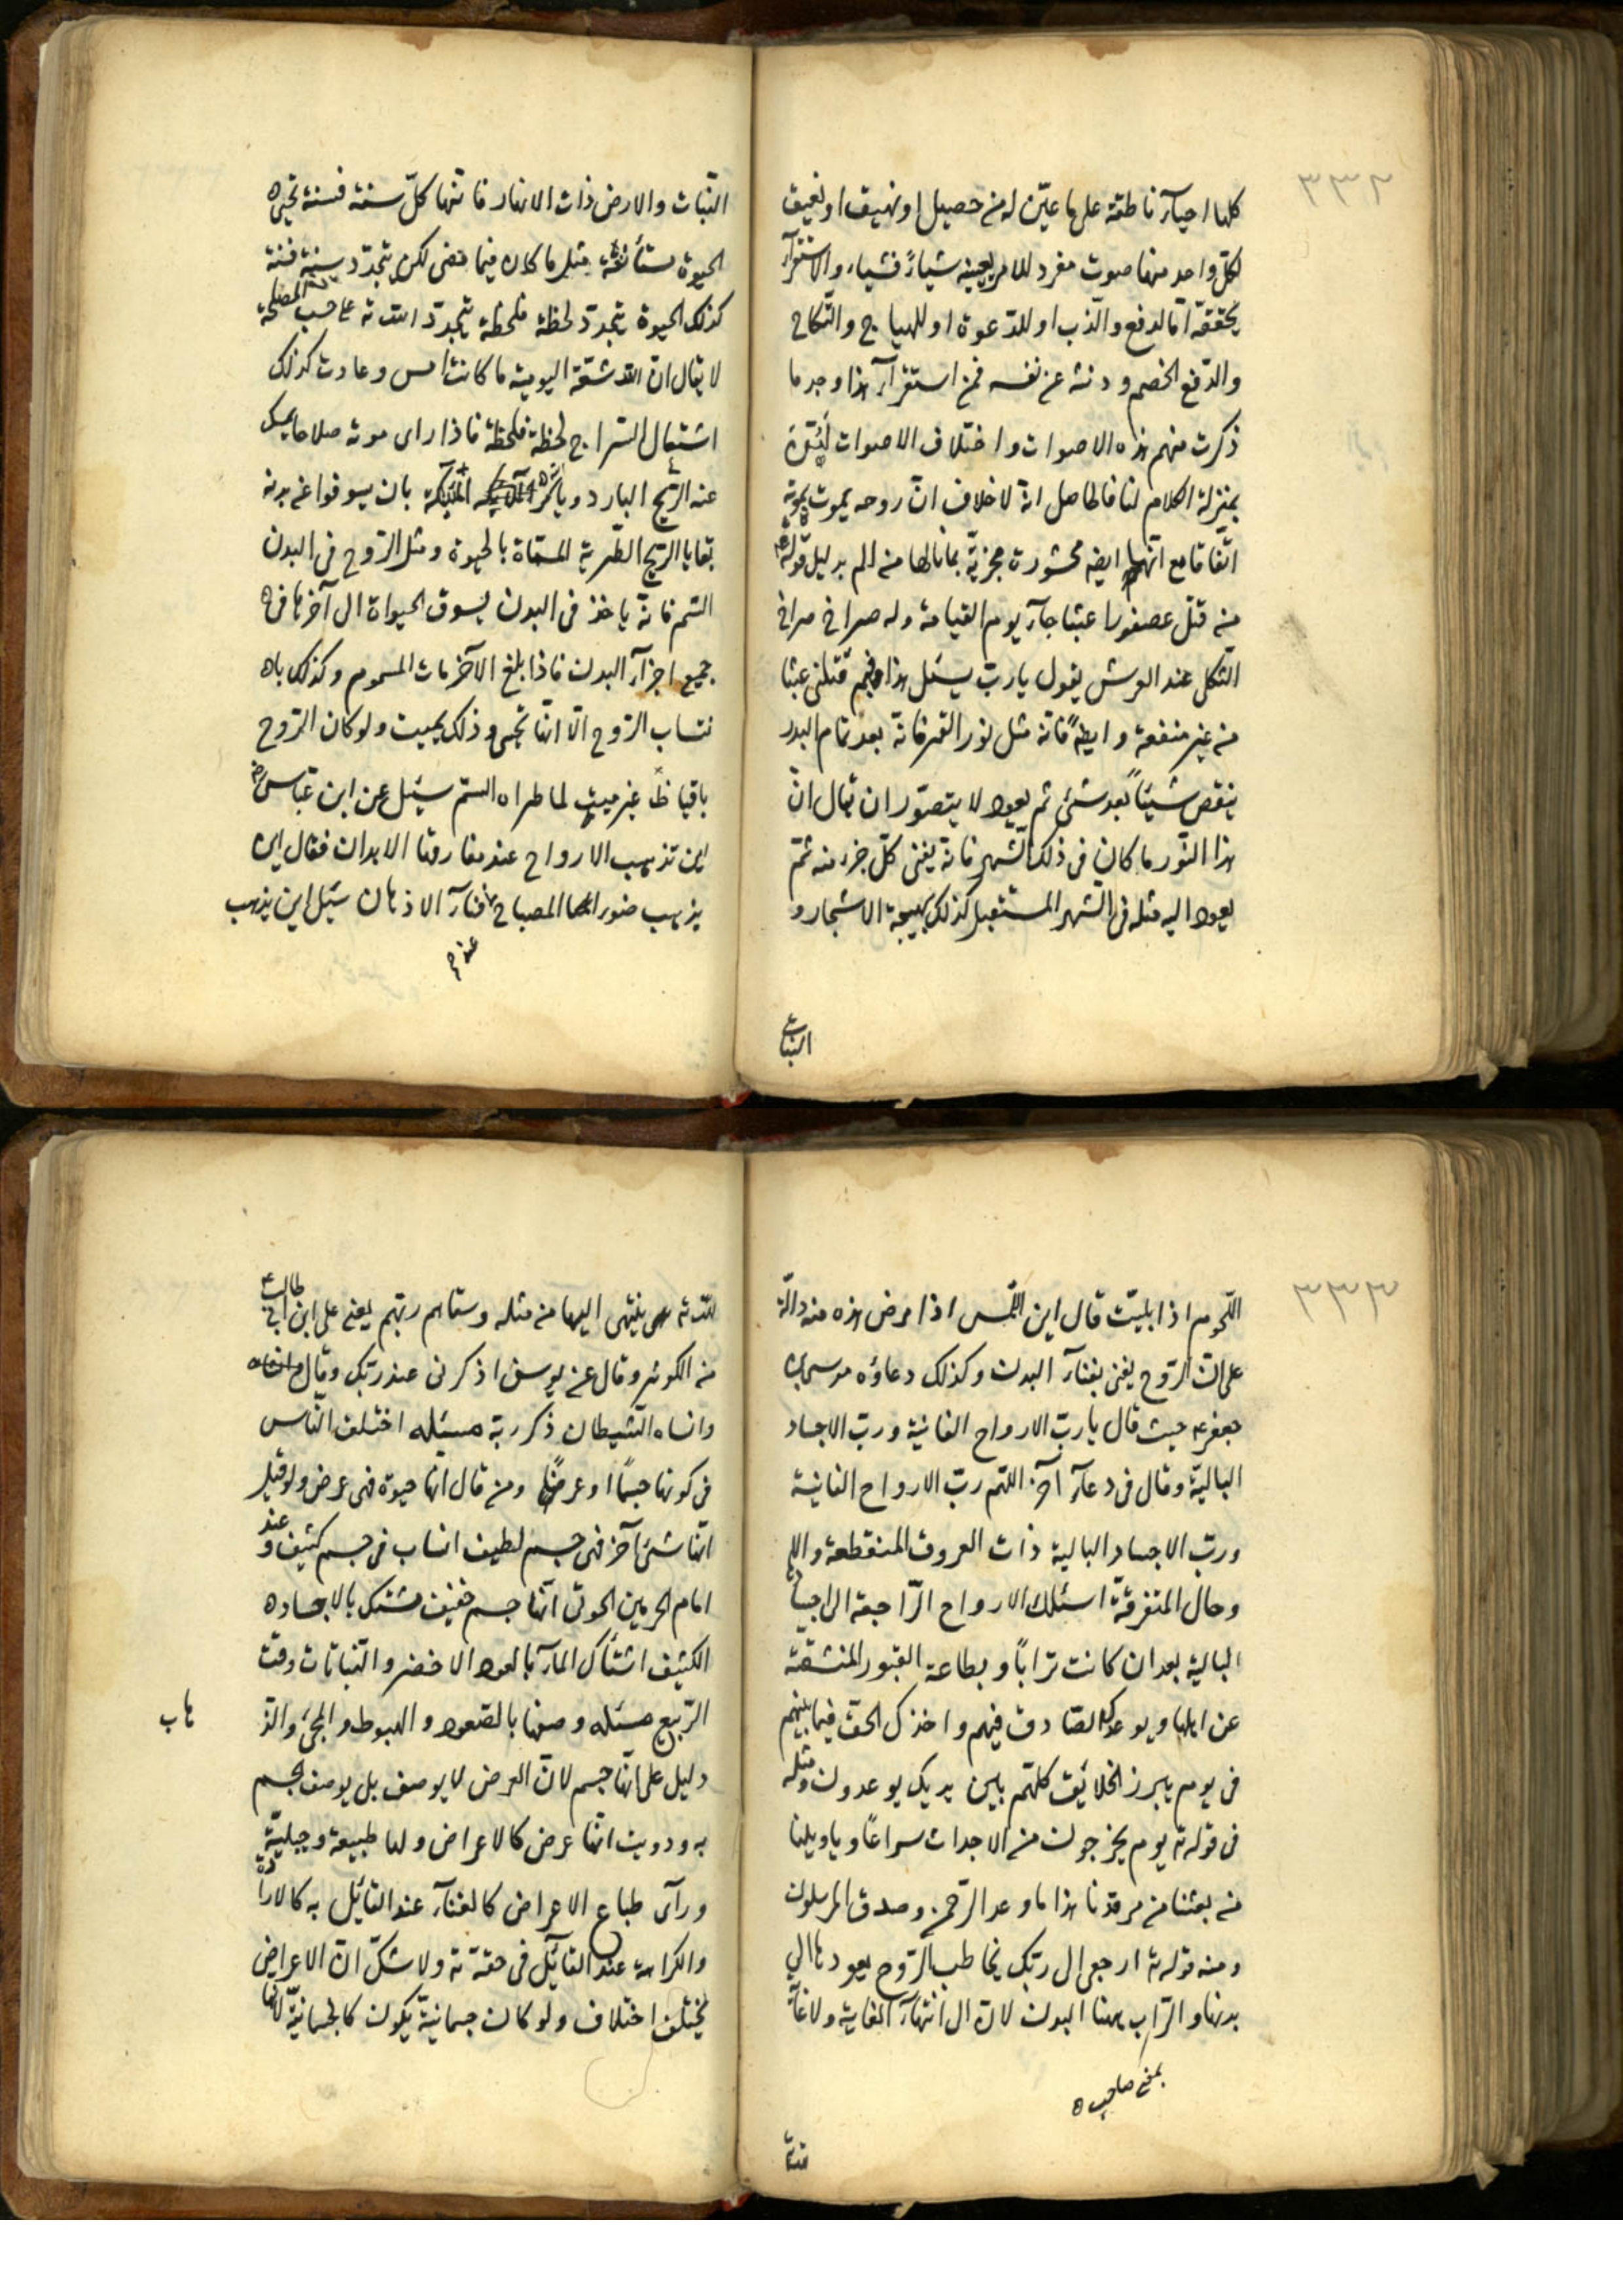 ٣٣٢
كلها احيآء ناطقة على ما عيّن له من حصيل او نهيق او نعيق
لكلّ واحد منها صوت مفرد للامر بعينه شيئاً فشياء والاستقرآء
يحققه امّا لدفع والذب او للدعوة او للهياج والنّكاح
والدّفع الخصم و عن نفسه فمن استقرآء هذا وجد ما
ذكرت منهم هذه الاصوات واختلاف الاصوات
بمنزلة الكلام لنا فالحاصل انه لا خلاف انّ روحه يموت بموته
اتّفاقا مع انّها ايضه محشورة مجزيّة بما نالها من الم بدليل قوله
من قتل عصفورا عبثا جآء يوم القيامة وله صراخ صراخ
الثكل عند العرش يقول يا ربّ سئل هذا فيم قتلنى عبثا
من غير منفعة وايضاً فانه مثل نور القمر فانه بعد تمام البدر
ينقص شيئاً بعد شئ ثم يعود لا يتصوّر ان يقال انّ
هذا النّور ما كان فى ذلك الشهر فانه يفنى كلّ جزء منه ثمّ
يعود اليه مثله فى الشهر المستقبل كذلك بهيجة الاشجار و
النبات
النّبات والارض ذات الانهار فانّها كلّ سنة فسنة تحيى
الحيوة مستأنفة مثل ما كان فيما مضى لكن يتجدّد سنة فسنة
كذلك الحيوة يتجدّد لحظة فلحظة يتجدّد الله ته على حسب المصلحة
لا يقال انّ الشقة اليومية ما كانت امس وعادت كذلك
اشتعال السّراج لحظة فلحظة فاذا راى موته صلاحا يمسك
عنه الرّيح البارد ويأمر الملئكة بان يسوقوا عن بدنه
بقايا الرّيح الطّرية المسمّاة بالحيوة ومثل الرّوح فى البدن
السّم فانه ياخذ فى البدن يسوق الحيواة الى آخرها فى
جميع اجزآء البدن فاذا بلغ الآخر مات المسموم وكذلك
نتساب الرّوح الّا انّها تحيى وذلك يميت ولو كان الرّوح
باقيا غير ميت لما طراه السّم سئل عن ابن عبّاس رض
اين تذهب الارواح عند مفارقتا الابدان فقال اين
يذهب ضوء المصباح عند فنآء الاذهان سئل اين يذهب
٣٣٣
اللّحوم اذا بليت قال اين اللّمس اذا مرض هذه منه دالّة
على انّ الرّوح يفنى بفنآء البدن وكذلك دعاؤه موسى بن
جعفر ع حيث قال يا ربّ الارواح الفانية وربّ الاجساد
البالية وقال فى دعآء آخر اللّهم ربّ الارواح الفانية
وربّ الاجساد البالية ذات العروق المنقطعة و
وحال المتفرقة اسئلك الارواح الرّاجعة الى اجسا
البالية بعد ان كانت تراباً وبطاعة القبور المنشقة
عن اهلها وبوعدك الصّادق فيهم واخذك الحق فيما بينهم
فى يوم يبرز الخلائق كلّهم بين يديك يوعدون ومثله
فى قوله ته يوم يخرجون من الاجداث سراعاً ويا ويلنا
من بعثنا من مرقدنا هذا ما وعد الرّحمن وصدق المرسلون
ومنه قوله ته ارجعى الى ربّك يخاطب الرّوح بعودها الى
بدنها والرّب ههنا البدن لانّ الى انتهآء الغاية ولا غاية
بمعنى صاحب
لله ته ينتهى اليها من مثله وسقاهم ربّهم يعنى على ابن ابى طالب ع
من الكوثر وقال عن يوسف اذكرنى عند ربّك وقال
وانساه الشّيطان ذكر ربّه مسئله اختلف النّاس
فى كونها جسماً او عرضاً ومن قال انّها حيوة فهى عرض ولو قيل
انّها شئ آخر فهى جسم لطيف انساب فى جسم كثيف وعند
امام الحرمين الجوينى انّها جسم خفيف مشتبك بالاجساد
الكثيف اشتباك المآء بالعود الاخضر والنّباتات وقت
الرّبيع مسئله وصفها بالصّعود والهبوط والمجئ والذ
هاب
دليل على انّها جسم لانّ العرض لا يوصف بل يوصف جسم
به ورويت انّها عرض كالاعراض ولها طبيعة وجبليّة
ورآى طباع الاعراض كالفنآء عند القائل به كالارادة
والكراهة عند القآئل فى حقّه ته ولا شكّ انّ الاعراض
يختلف اختلاف ولو كانت جسمانيّة يكون كالجسمانيّة لانّها